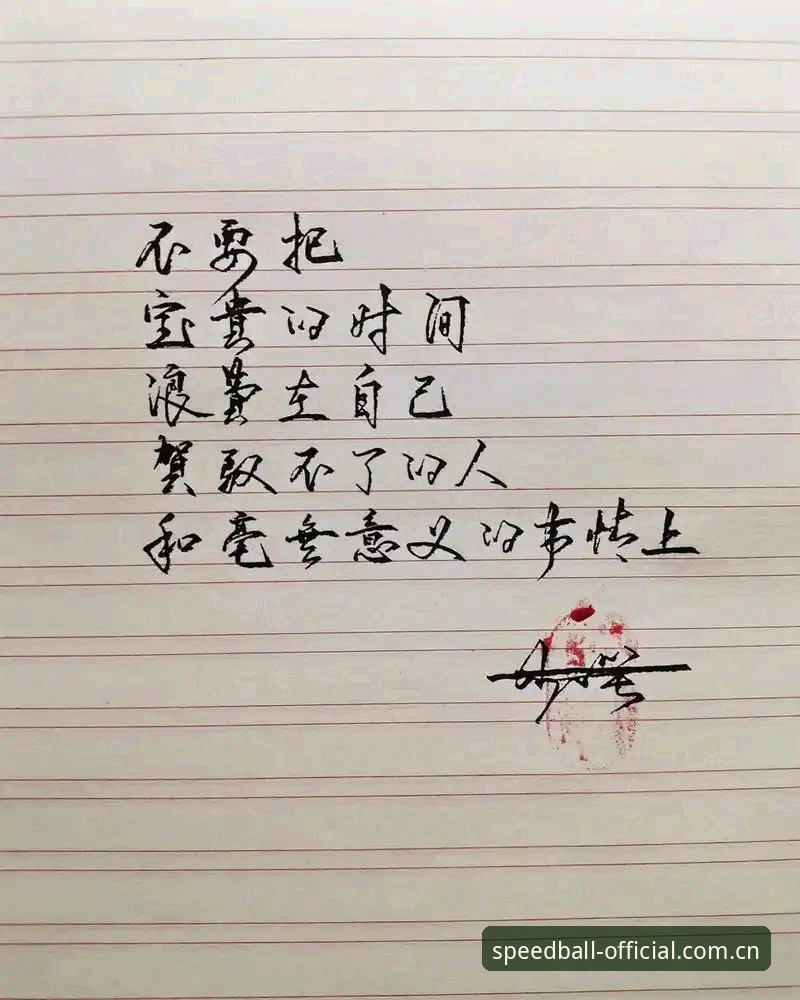 不要把
宝貴的时间
浪費在自己
賀驭不了的人
和毫無意义的事情上
speedball-official.com.cn